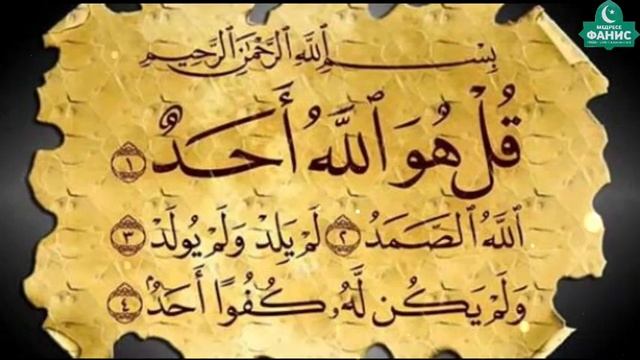 МЕДРЕСЕ
ФАНИС
بِسْمِ ٱللَّهِ ٱلرَّحْمَٰنِ ٱلرَّحِيمِ
قُلْ هُوَ ٱللَّهُ أَحَدٌ ١
ٱللَّهُ ٱلصَّمَدُ ٢ لَمْ يَلِدْ وَلَمْ يُولَدْ ٣
وَلَمْ يَكُن لَّهُۥ كُفُوًا أَحَدٌۢ ٤